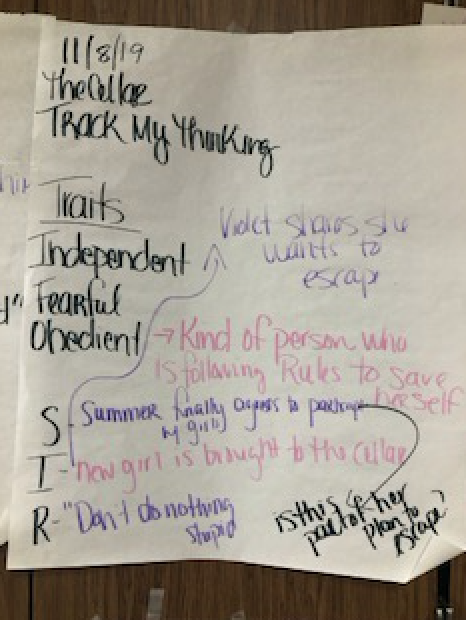 11/8/19
The Cellar
Track My Thinking
Traits
Violet shares she
wants to
escape
Independent
Fearful
Obedient → Kind of person who
is following Rules to save
herself
S - Summer finally agrees to
w/ girls
I - new girl is brought to the Cellar
R - "Don't do nothing
stupid
is this
part of her
plan to
escape?